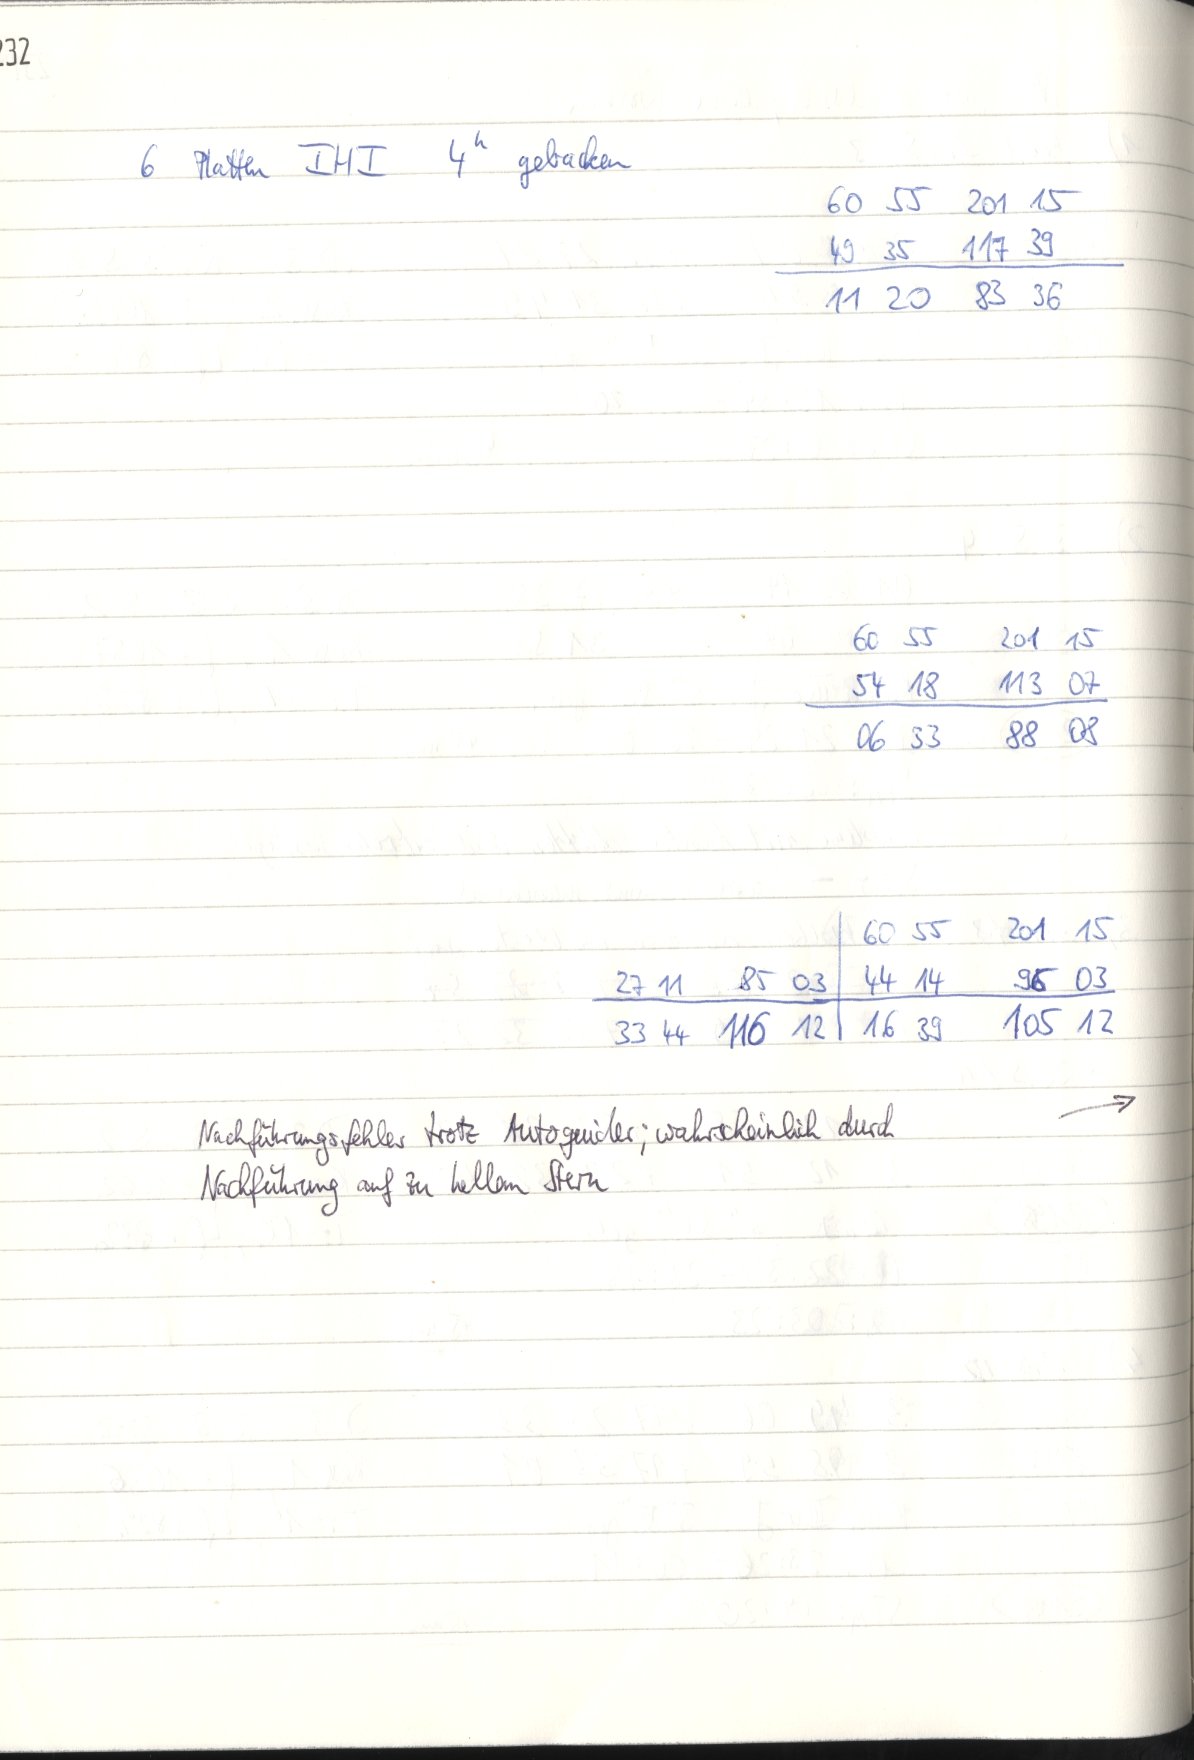 232
6 Platten IHI 4h gebacken
60 55 201 15
49 35 117 39
11 20 83 36
60 55 201 15
54 18 113 07
06 33 88 08
60 55 201 15
27 11 85 03 44 14 96 03
33 44 116 12 16 39 105 12
Nachführungsfehler trotz Autoguider; wahrscheinlich durch
Nachführung auf zu hellem Stern